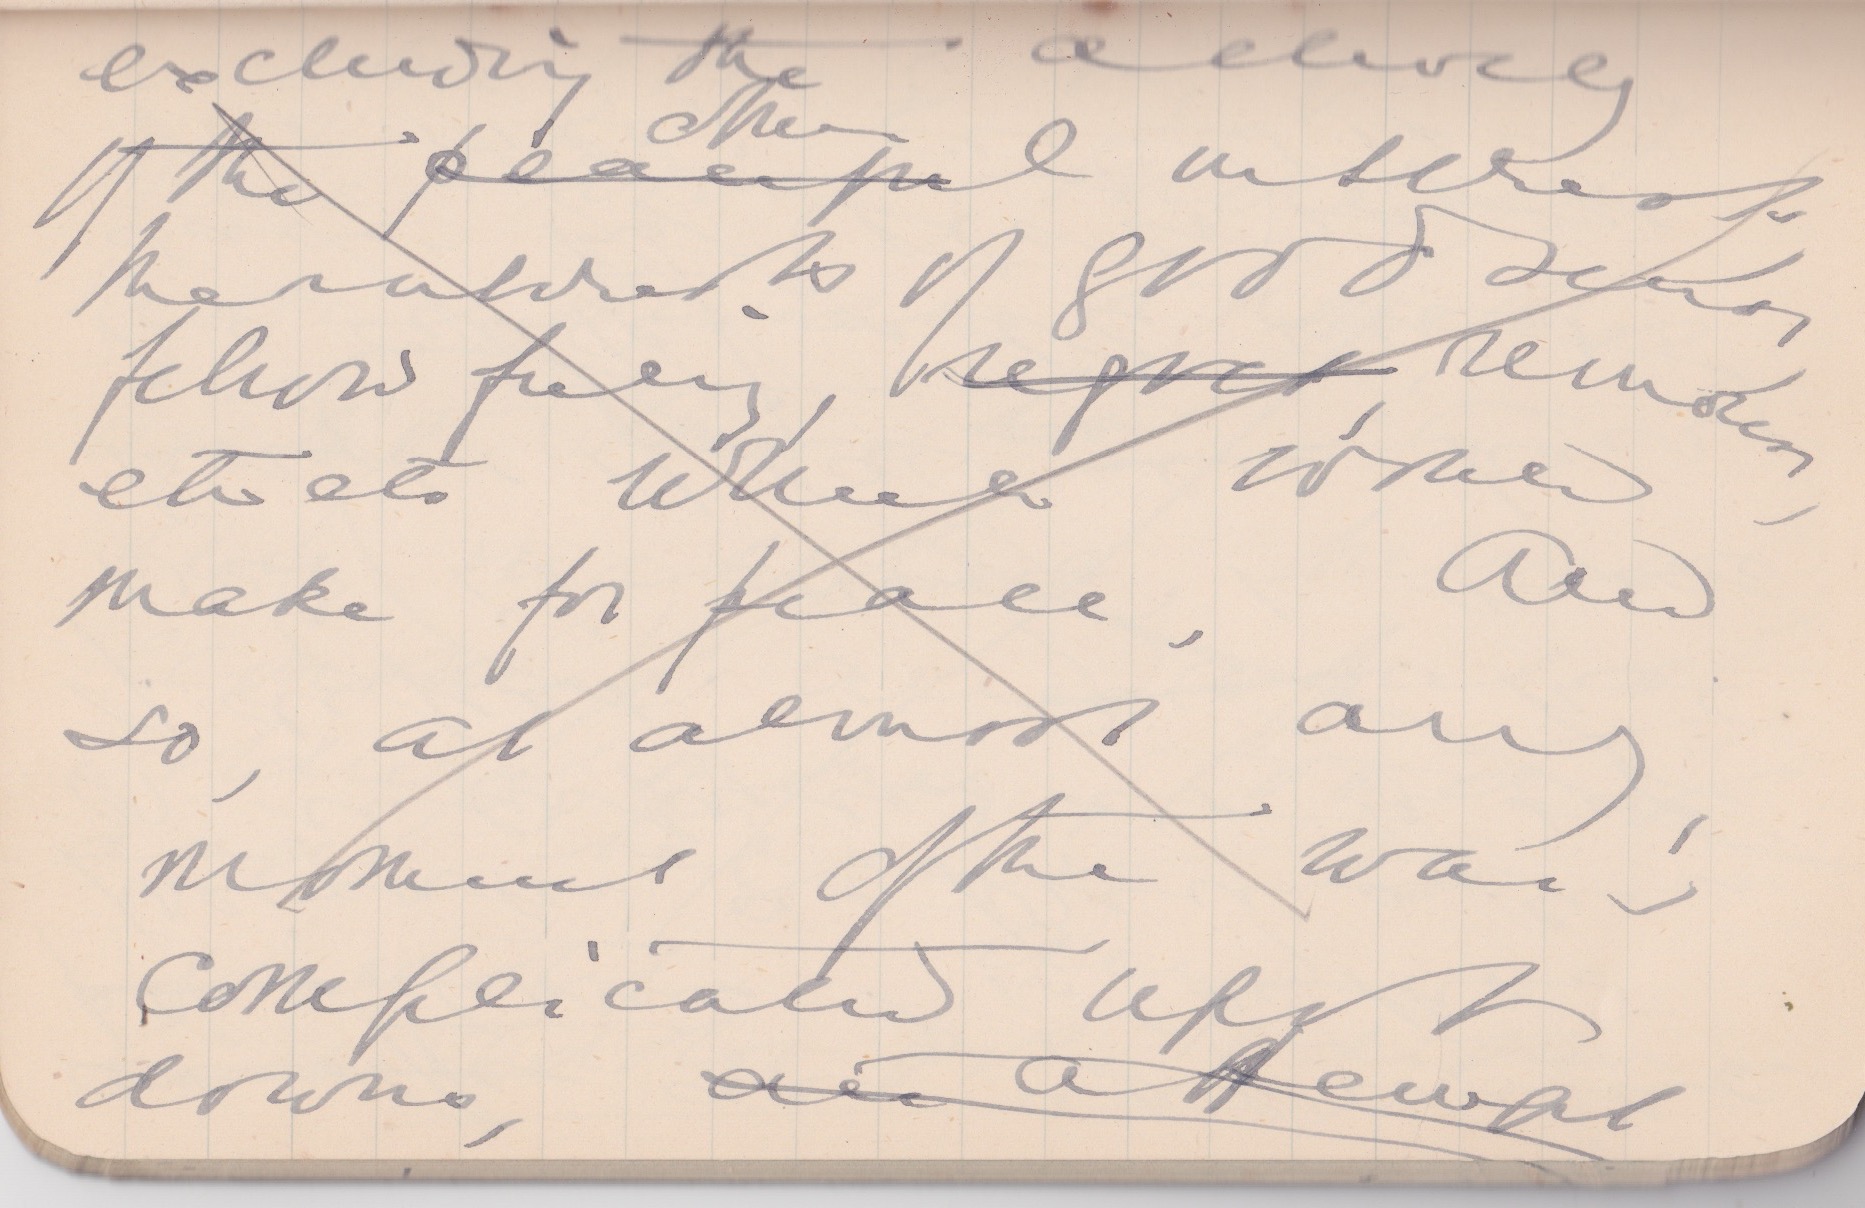 excluding the activity
other
of the peaceful interests
the interests of good sense,
fellow feeling, regret remorse,
etc etc which would
make for peace, And
so, at almost any
moment of the war's
complicated ups &
downs, an attempt